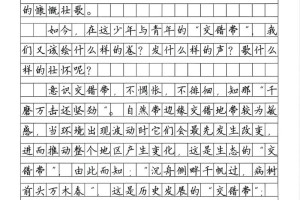 的慷慨壮歌。
如今，在这少年与青年的“交错带”，我
们又该绘什么样的卷？发什么样的声？歌什么
样的壮怀呢？
意识交错带，不惆怅，不徘徊，知那“千
磨万击还坚劲”。自然带边缘交错地带较为敏
感，当环境出现波动时它们会最先发生改变，
进而推动整个地区产生变化，这是生态的“交
错带”，由此而知；“沉舟侧畔千帆过，病树
前头万木春”，这是历史发展的“交错带”；